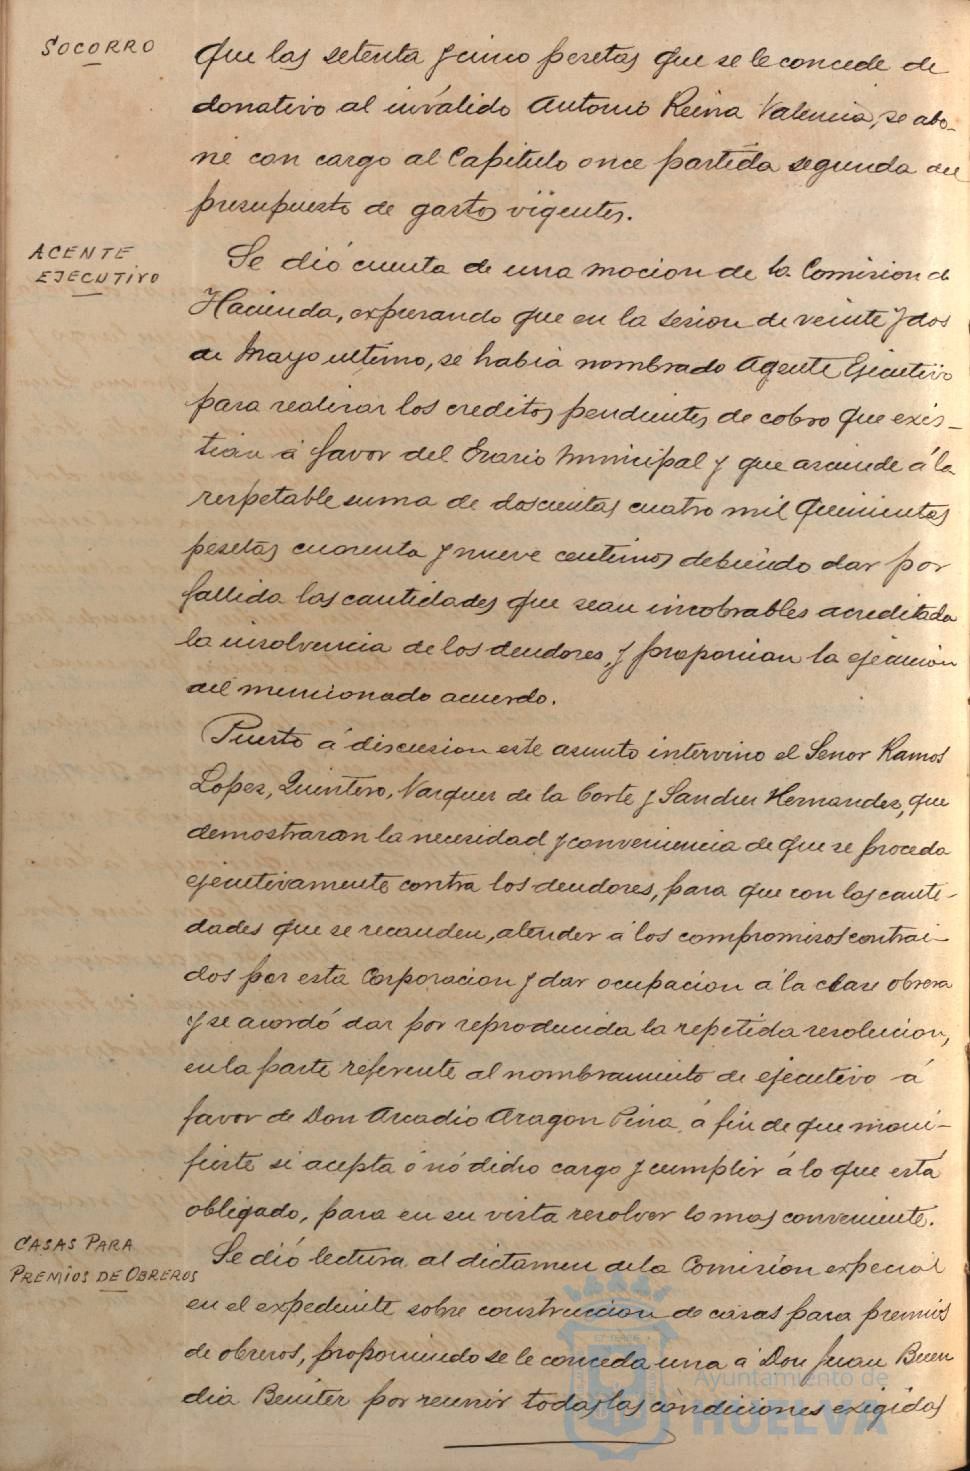 SOCORRO
que las setenta y cinco pesetas que se le concede de
donativo al inválido Antonio Reina Valencia, se abo-
ne con cargo al Capitulo once partida segunda del
presupuesto de gastos vigentes.
AGENTE
EJECUTIVO
Se dió cuenta de una mocion de la Comision de
Hacienda, expresando que en la sesion de veinte y dos
de Mayo ultimo, se habia nombrado Agente Ejecutivo
para realizar los creditos pendientes de cobro que exis-
tian á favor del Erario Municipal y que asciende á la
respetable suma de doscientas cuatro mil quinientas
pesetas cuarenta y nueve centimos debiendo dar por
fallida las cantidades que sean incobrables acreditada
la insolvencia de los deudores, y proponian la ejecucion
del mencionado acuerdo.
Puesto á discusion este asunto intervino el Señor Ramos
Lopez, Quintero, Vazquez de la Corte y Sanchez Hernandez, que
demostraron la necesidad y conveniencia de que se proceda
ejecutivamente contra los deudores, para que con las canti-
dades que se recauden, atender á los compromisos contrai-
dos por esta Corporacion y dar ocupacion á la clase obrera
y se acordó dar por reproducida la repetida resolucion,
en la parte referente al nombramiento de ejecutivo á
favor de Don Arcadio Aragon Pina, á fin de que mani-
fieste si acepta ó nó dicho cargo y cumplir á lo que está
obligado, para en su vista resolver lo mas conveniente.
CASAS PARA
PREMIOS DE OBREROS
Se dió lectura al dictamen de la Comisión especial
en el expediente sobre construccion de casas para premios
de obreros, proponiendo se le conceda una á Don Juan Buen
dia Benitez por reunir todas las condiciones exigidas
Ayuntamiento de
HUELVA